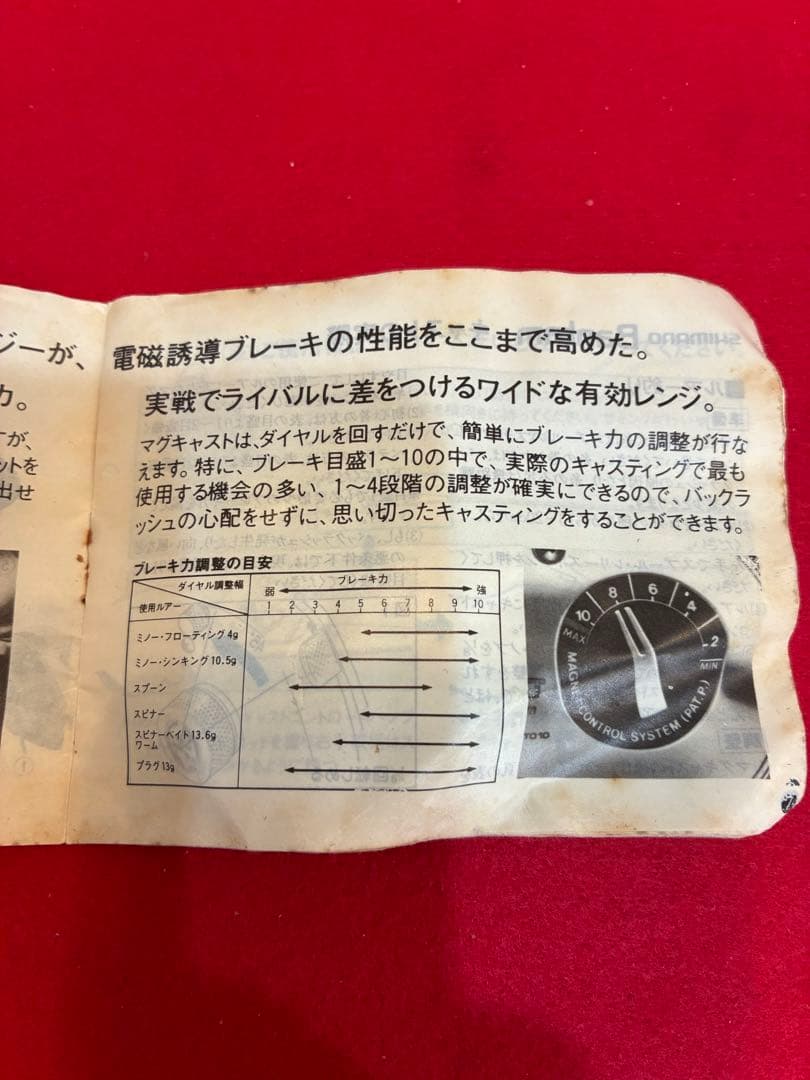 ジーが、
力。
すが、
ットを
出せ
電磁誘導ブレーキの性能をここまで高めた。
実戦でライバルに差をつけるワイドな有効レンジ。
マグキャストは、ダイヤルを回すだけで、簡単にブレーキ力の調整が行な
えます。特に、ブレーキ目盛1〜10の中で、実際のキャスティングで最も
使用する機会の多い、1〜4段階の調整が確実にできるので、バックラ
ッシュの心配をせずに、思い切ったキャスティングをすることができます。
ブレーキ力調整の目安
ダイヤル調整幅
使用ルアー
ブレーキ力
弱 強
1 2 3 4 5 6 7 8 9 10
ミノー・フローティング4g
ミノー・シンキング10.5g
スプーン
スピナー
スピナーベイト13.6g
ワーム
プラグ13g
10 8 6 4 2
MAX MIN
CONTROL SYSTEM (PAT.P.)